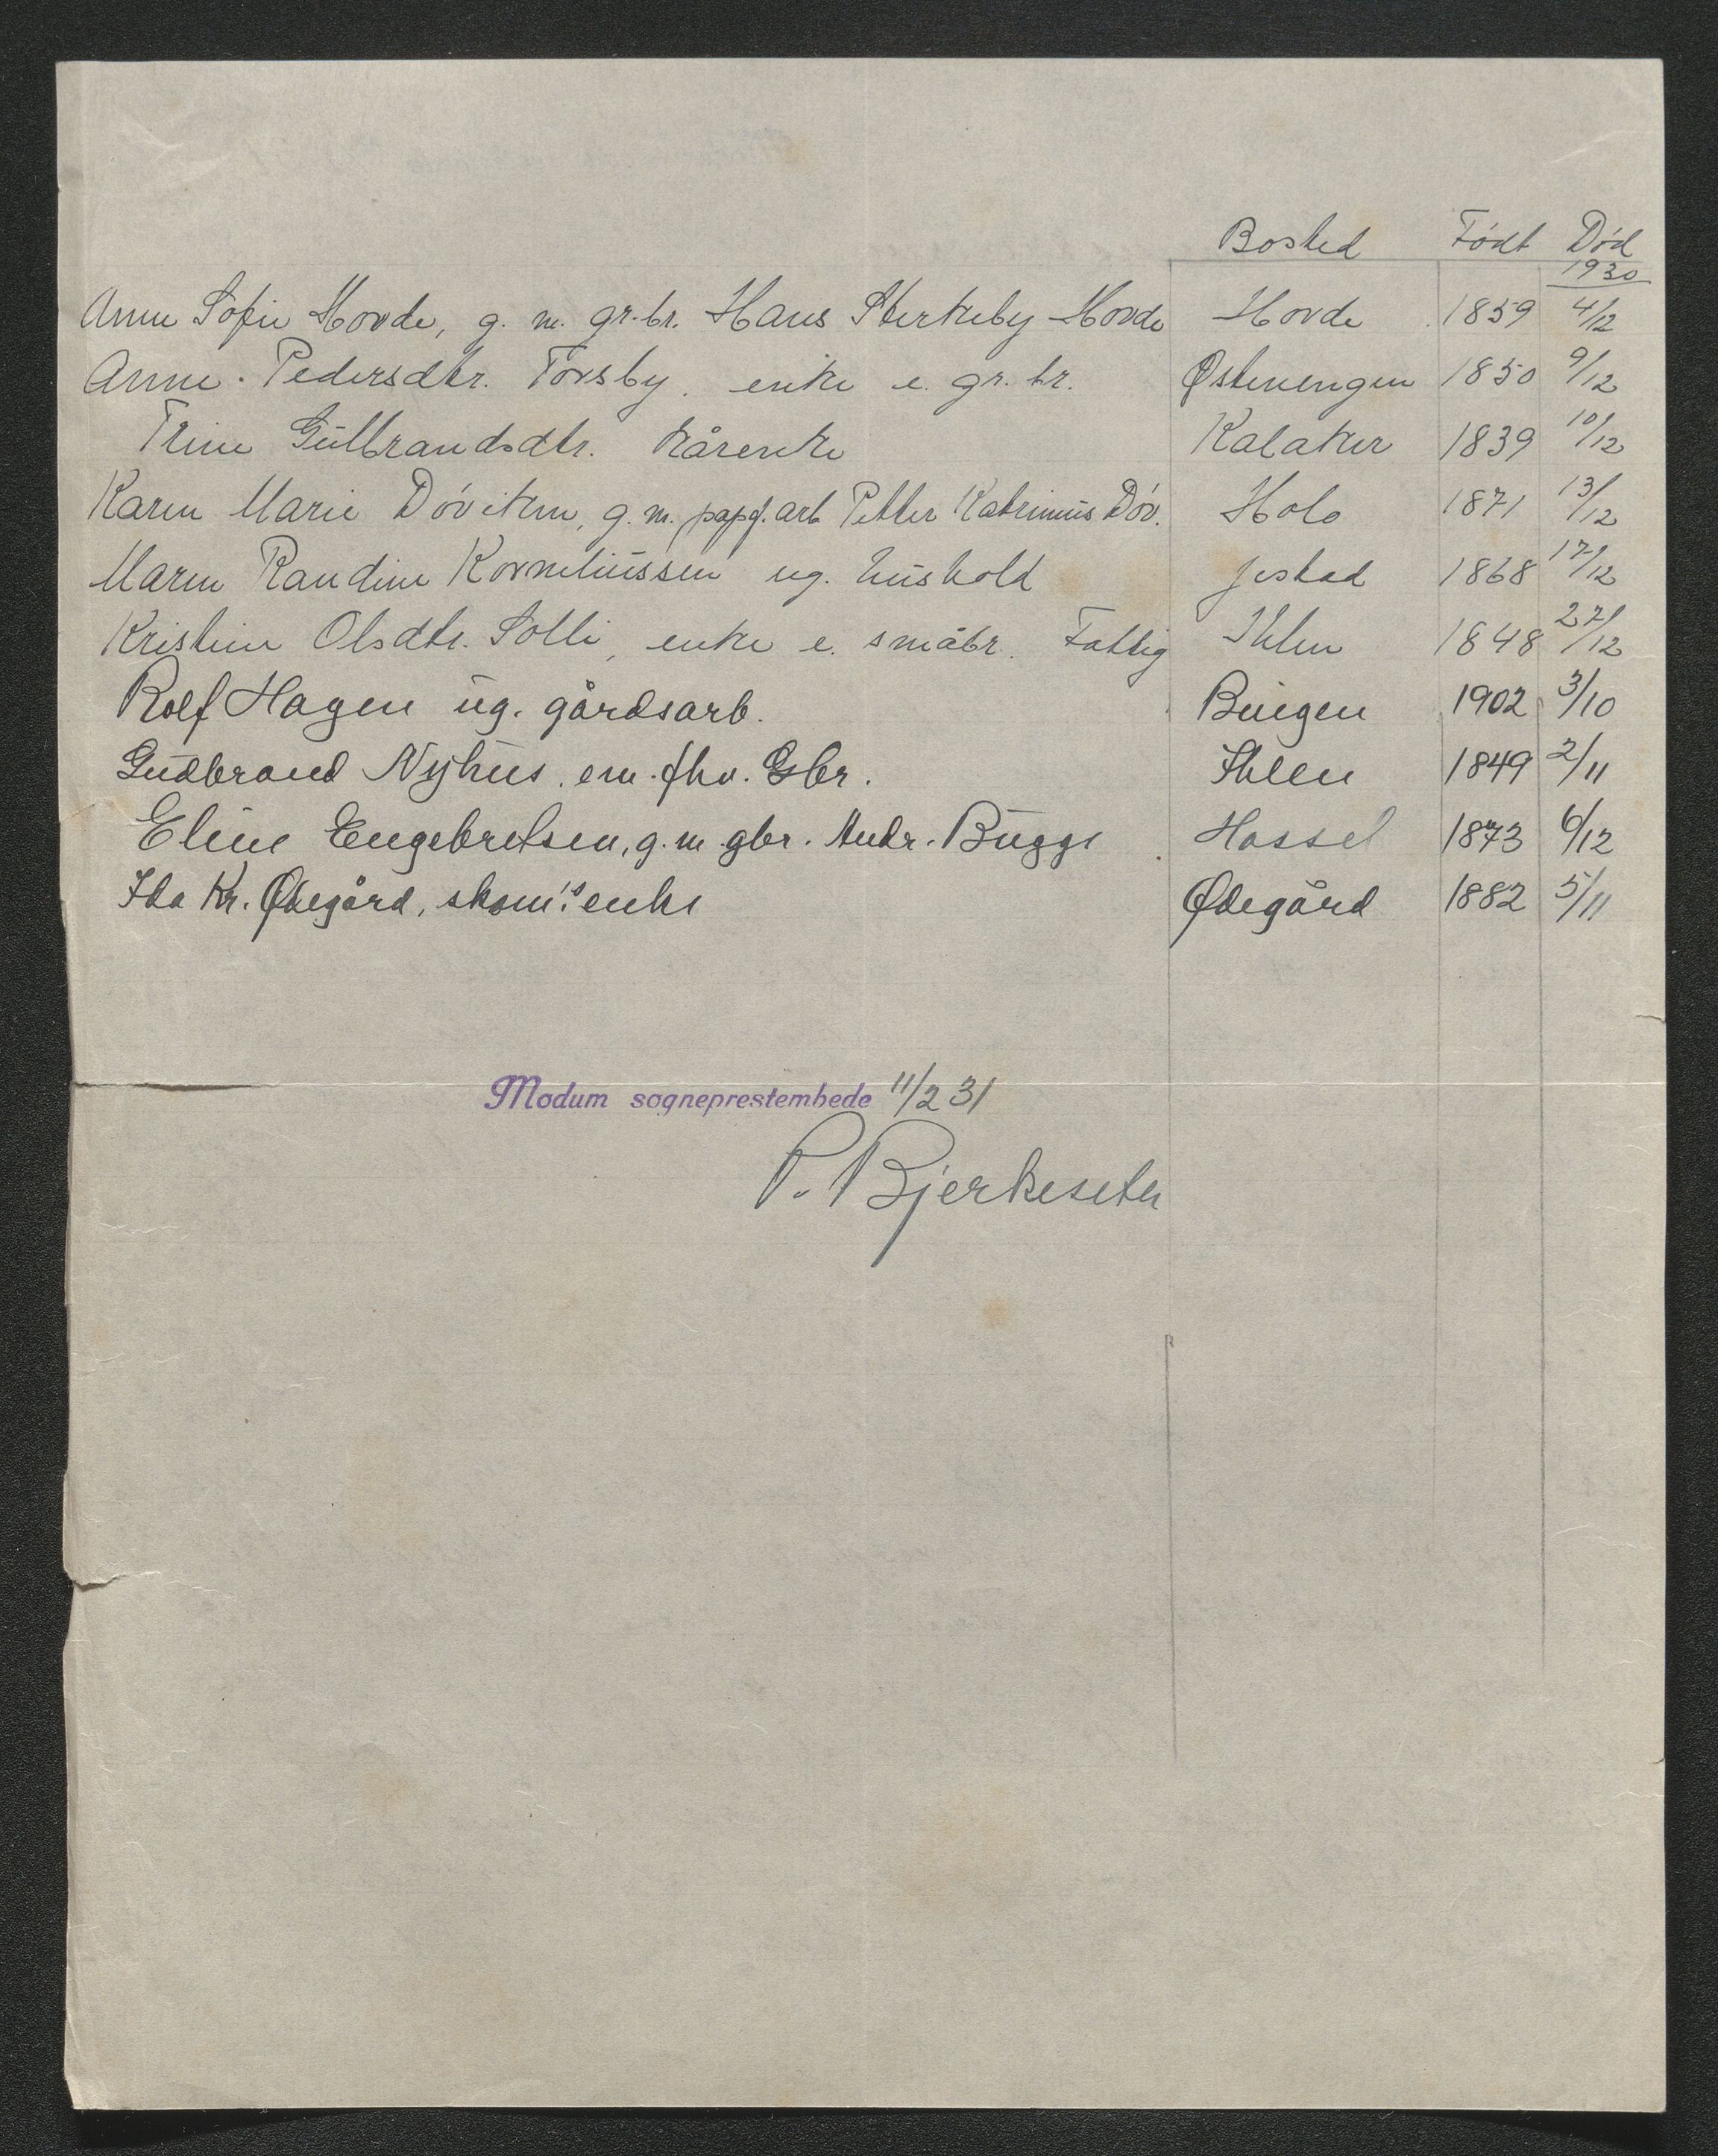 Bosted Født Død
1930
Anne Sofie Hovde, g. m. gr.br. Hans Sterkeby Hovde Hovde 1859 4/12
Anne Pedersdtr. Forsby. enke e. gr. br. Østenengen 1850 9/12
Trine Gulbrandsdtr. kårenke Kalaker 1839 10/12
Karen Marie Døviken, g. m. papf. arb Petter Katrinius Døv. Holo 1871 13/12
Maren Randine Korneliussen ug. hushold Jestad 1868 17/12
Kristine Olsdtr. Solli, enke e. småbr. Fattig Ihlen 1848 27/12
Rolf Hagen ug. gårdsarb. Bingen 1902 3/10
Gudbrand Nyhus. em. fhv. Gbr. Ihlen 1849 2/11
Eline Engebretsen, g. m. gbr. Andr. Bugge Hassel 1873 6/12
Ida Kr. Ødegård, skom's enke Ødegård 1882 5/11
Modum sogneprestembede 11/2 31
P. Bjerkeseter